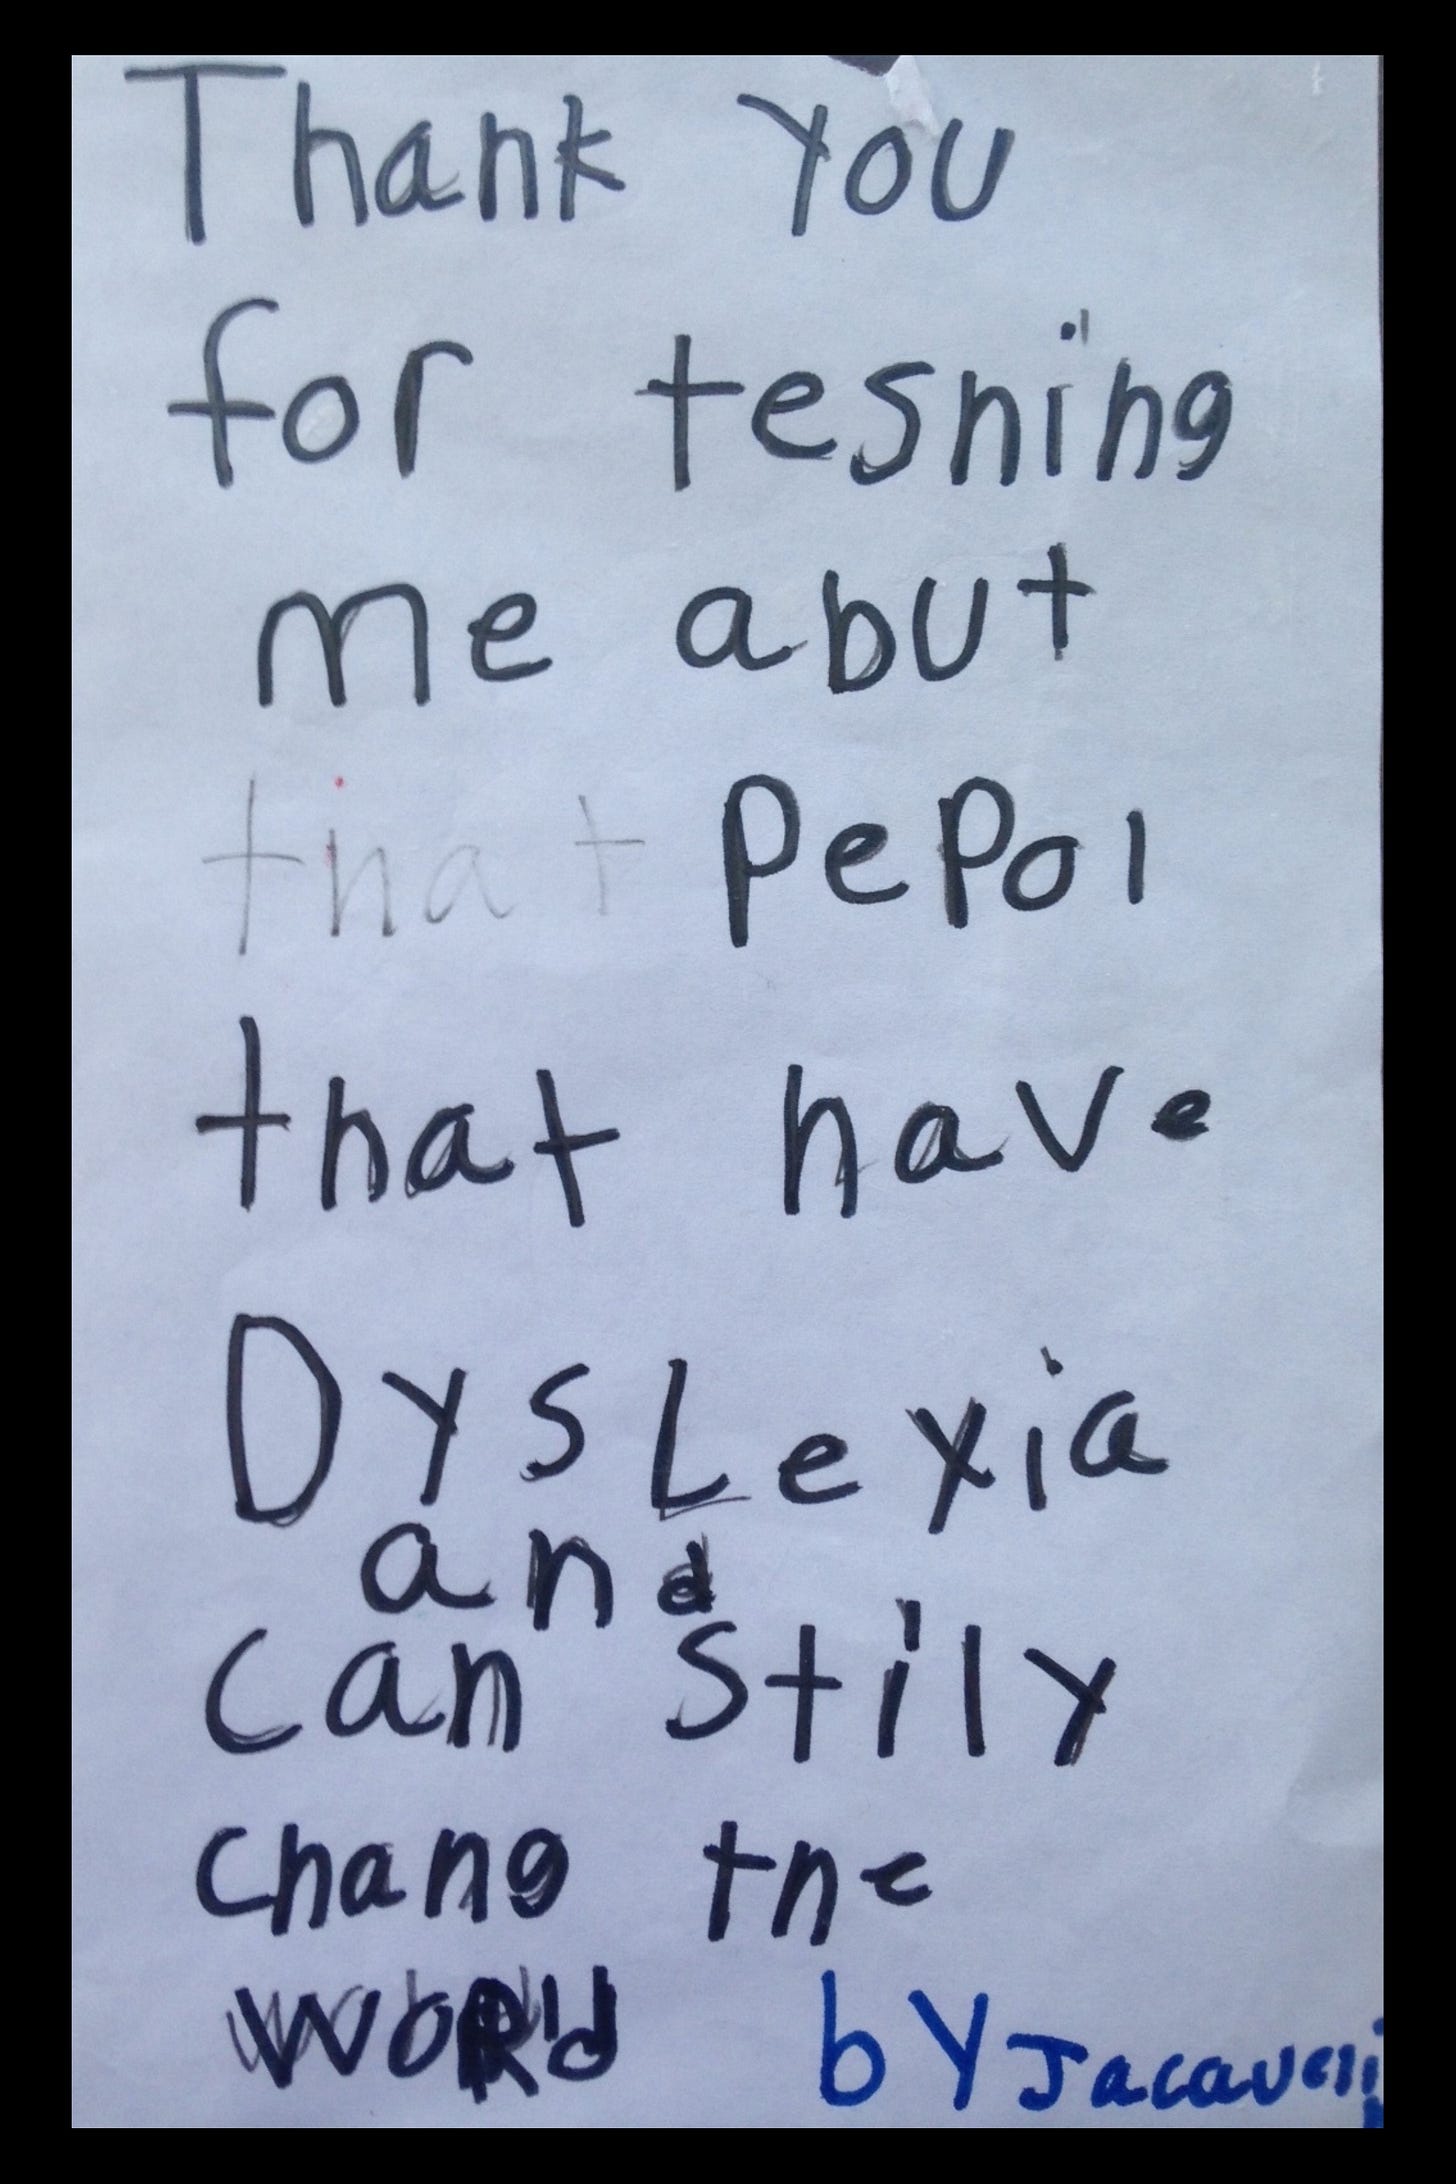 Thank you
for tesning
me abut
that Pepol
that have
DysLexia
and
can Stily
chang the
WoRld by